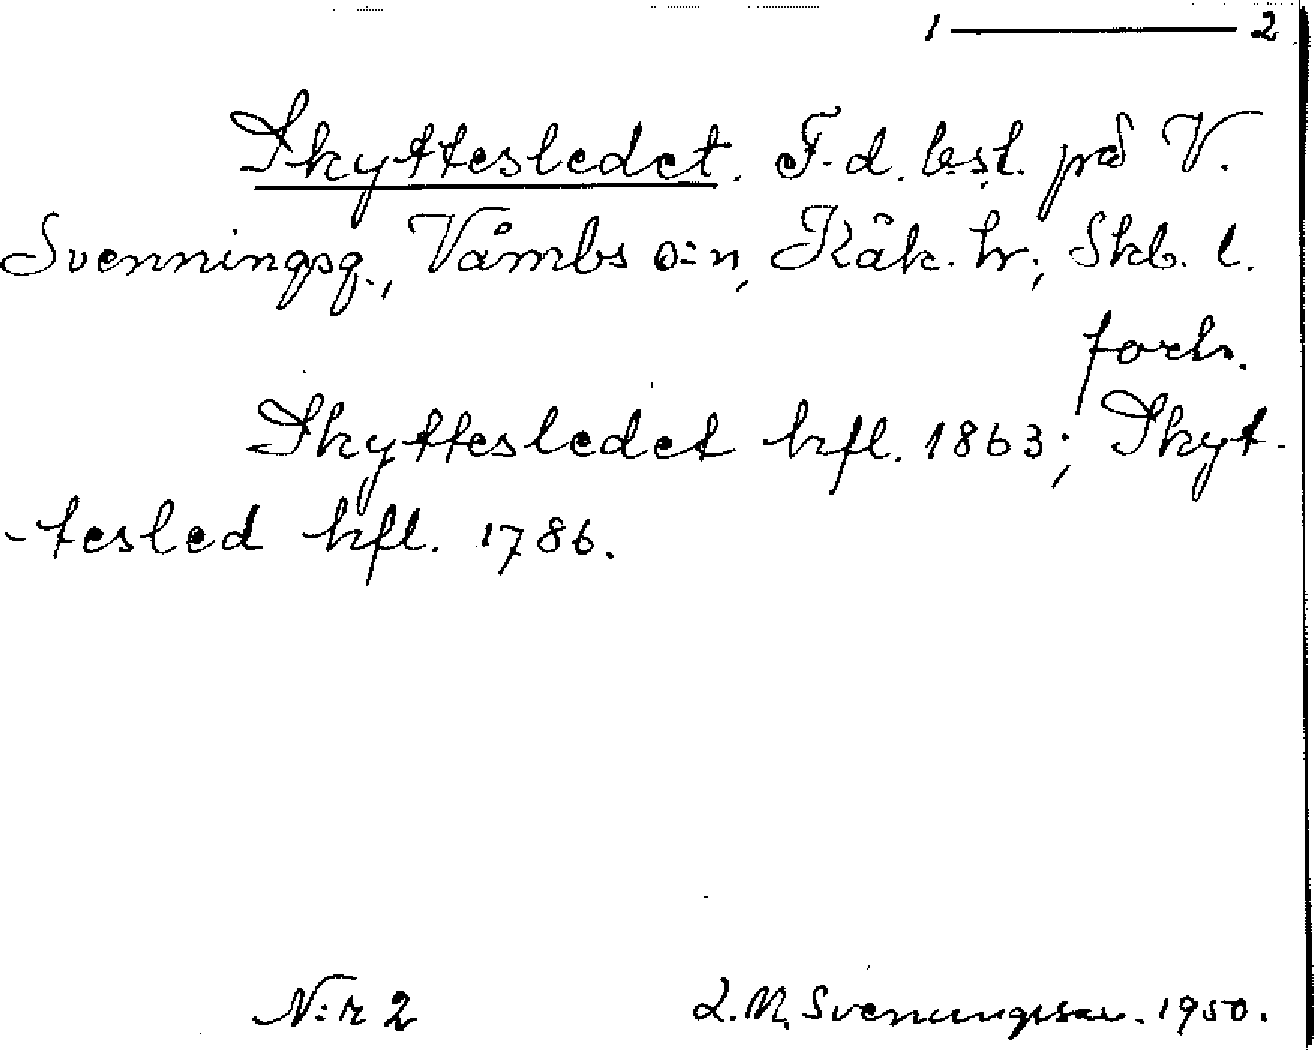 1 — 2
Skyttesledet. F.d. lsl. på V.
Svenningsg., Våmbs s:n, Kåk. hr; Skb. l.
forts.
Skyttesledet hfl. 1863; Skyt-
-tesled hfl. 1786.
N:r 2 L.M. Svenungsson. 1950.